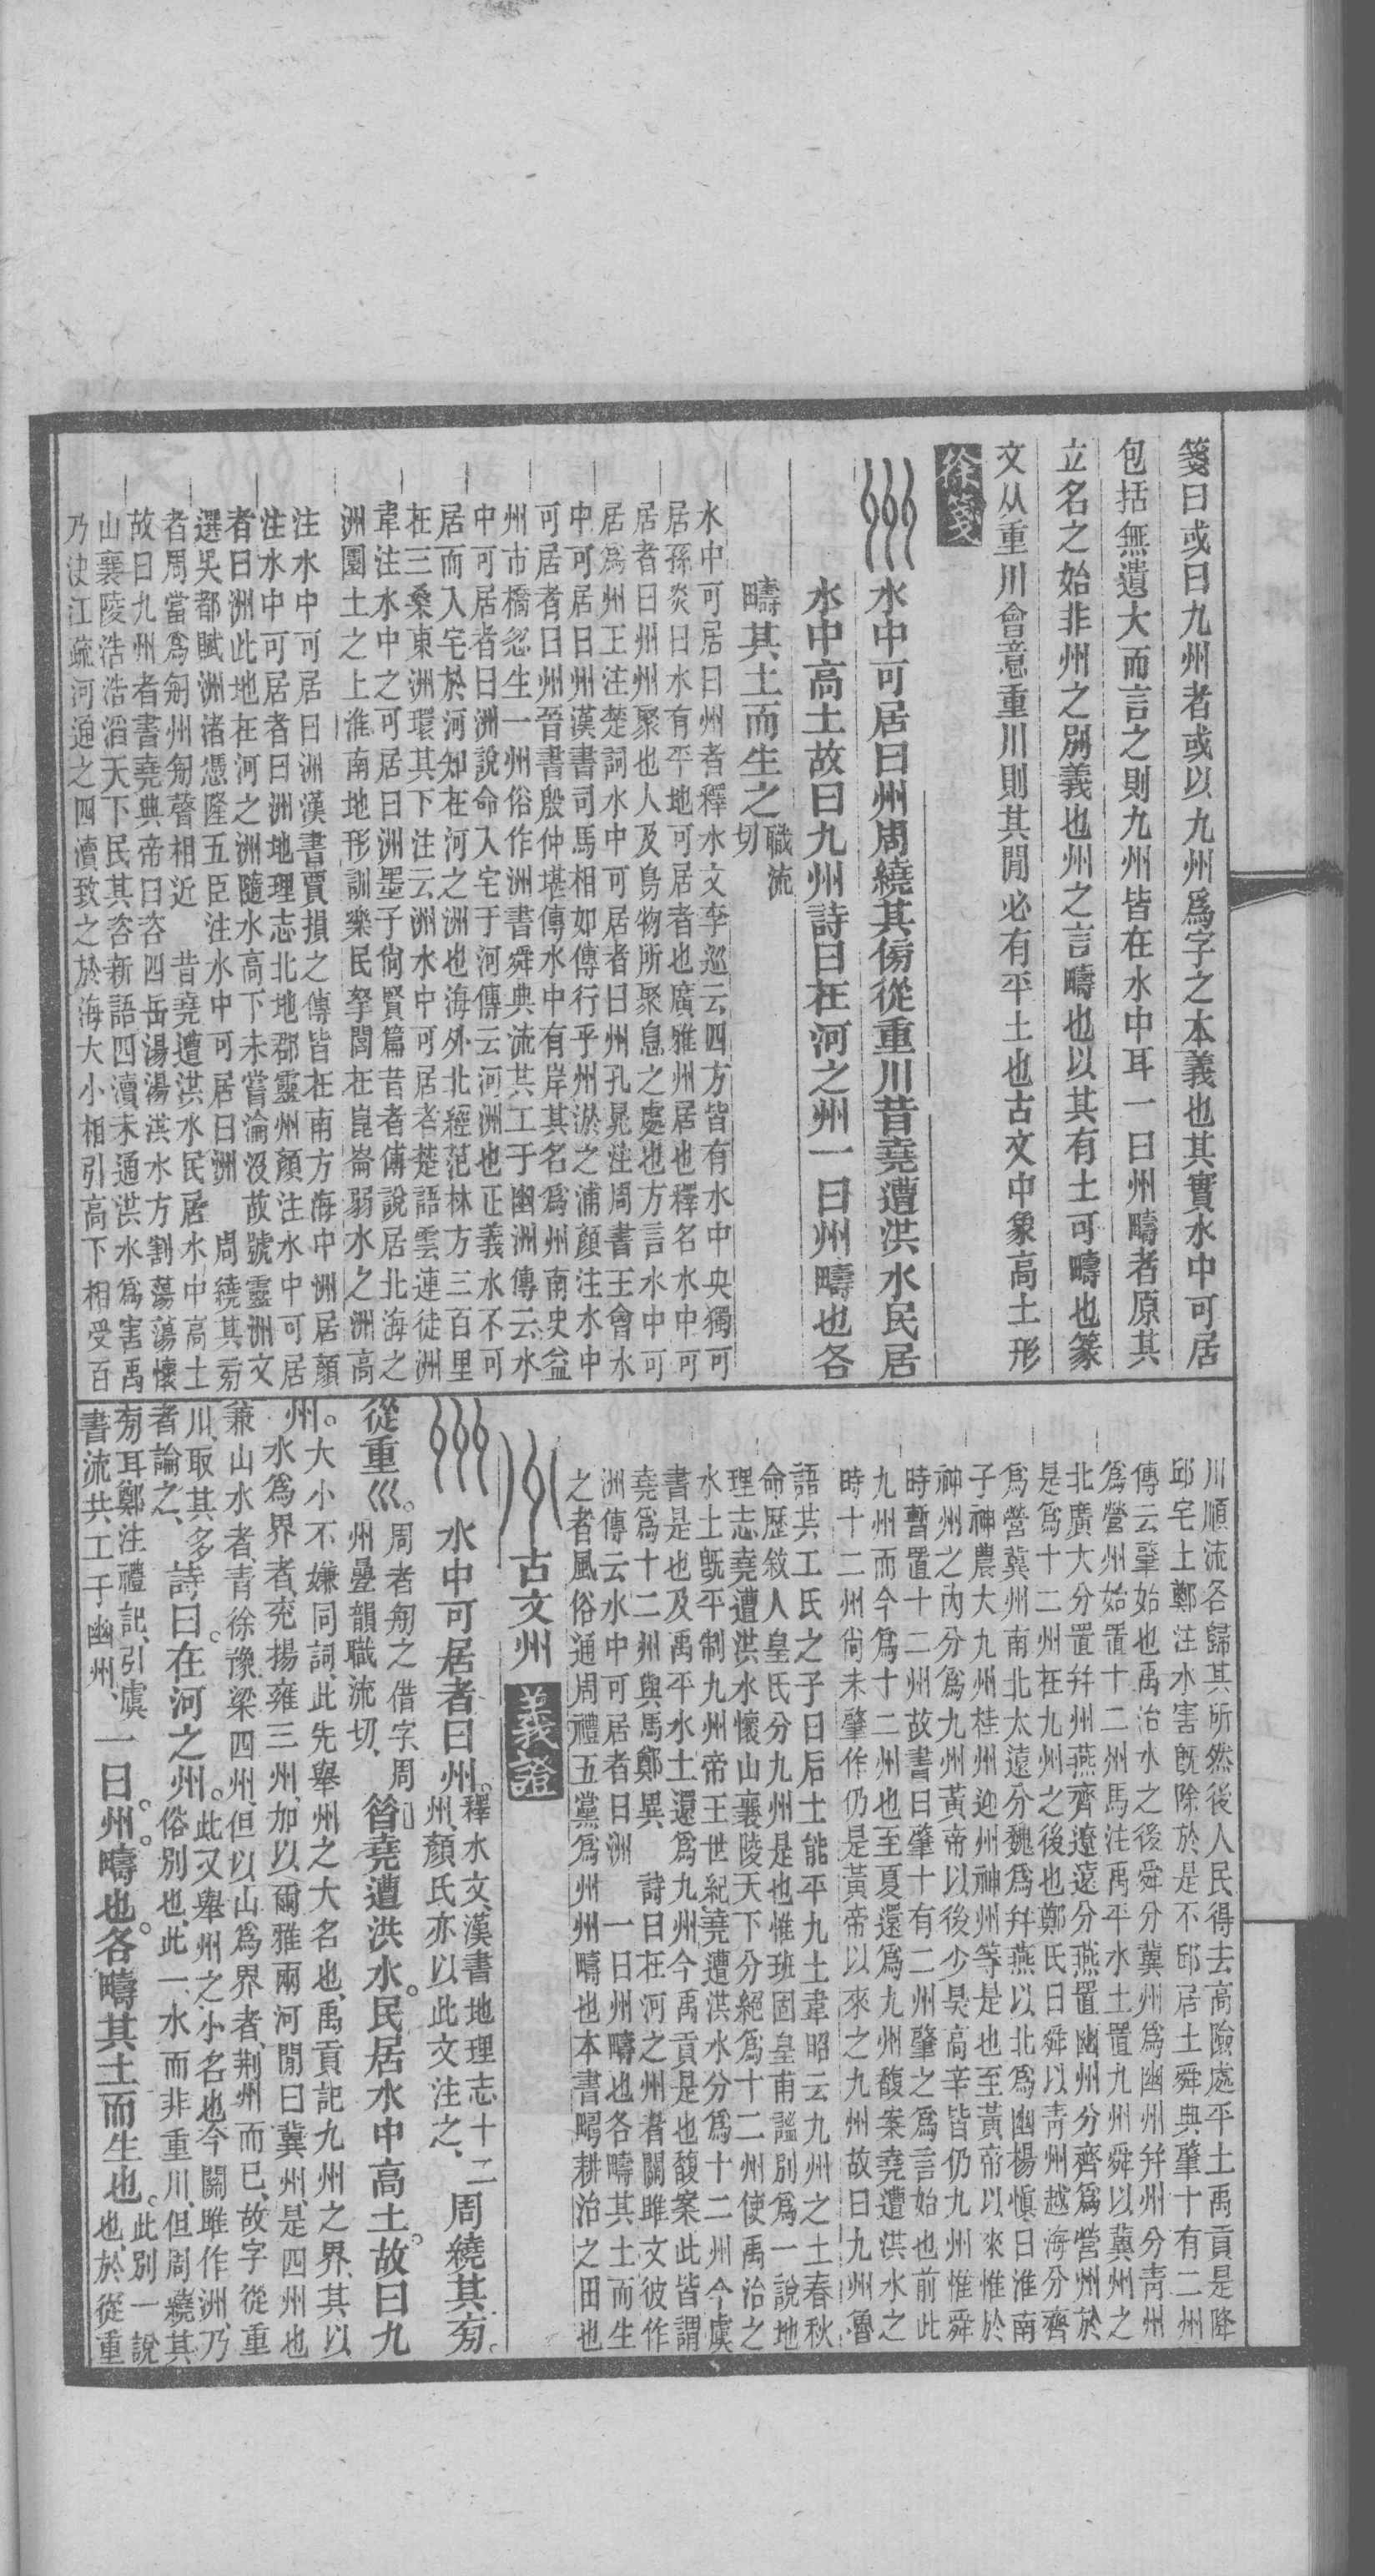 箋曰或曰九州者或以九州爲字之本義也其實水中可居
包括無遺大而言之則九州皆在水中耳一曰州疇者原其
立名之始非州之別義也州之言疇也以其有土可疇也篆
文从重川會意重川則其閒必有平土也古文中象高土形
徐箋
水中可居曰州周繞其傍從重川昔堯遭洪水民居
水中高土故曰九州詩曰在河之州一曰州疇也各
疇其土而生之職流切
水中可居曰州者釋水文李巡云四方皆有水中央獨可
居孫炎曰水有平地可居者也廣雅州居也釋名水中可
居者曰州州聚也人及鳥物所聚息之處也方言水中可
居爲州王注楚詞水中可居者曰州孔晁注周書王會水
中可居曰州漢書司馬相如傳行乎州淤之浦顏注水中
可居者曰州晉書殷仲堪傳水中有岸其名爲州南史益
州市橋忽生一州俗作洲書舜典流共工于幽洲傳云水
中可居者曰洲說命入宅于河傳云河洲也正義水不可
居而入宅於河知在河之洲也海外北經范林方三百里
在三桑東洲環其下注云洲水中可居者楚語雲連徒洲
韋注水中之可居曰洲墨子尙賢篇昔者傅說居北海之
洲圜土之上淮南地形訓樂民拏閭在崑崙弱水之洲高
注水中可居曰洲漢書賈損之傳皆在南方海中洲居顏
注水中可居者曰洲地理志北地郡靈州顏注水中可居
者曰洲此地在河之洲隨水高下未嘗淪沒故號靈洲文
選吳都賦洲渚憑隆五臣注水中可居曰洲　周繞其㫄
者周當爲匊州匊聲相近　昔堯遭洪水民居水中高土
故曰九州者書堯典帝曰咨四岳湯湯洪水方割蕩蕩懷
山襄陵浩浩滔天下民其咨新語四瀆未通洪水爲害禹
乃決江疏河通之四瀆致之於海大小相引高下相受百
川順流各歸其所然後人民得去高險處平土禹貢是降
邱宅土鄭注水害旣除於是不邱居土舜典肇十有二州
傳云肇始也禹治水之後舜分冀州爲幽州幷州分青州
爲營州始置十二州馬注禹平水土置九州舜以冀州之
北廣大分置幷州燕齊遼遠分燕置幽州分齊爲營州於
是爲十二州在九州之後也鄭氏曰舜以青州越海分齊
爲營冀州南北太遠分魏爲幷燕以北爲幽楊愼曰淮南
子神農大九州桂州迎州神州等是也至黃帝以來惟於
神州之內分爲九州黃帝以後少昊高辛皆仍九州惟舜
時暫置十二州故書曰肇十有二州肇之爲言始也前此
九州而今爲十二州也至夏還爲九州馥案堯遭洪水之
時十二州尙未肇作仍是黃帝以來之九州故曰九州魯
語共工氏之子曰后土能平九土韋昭云九州之土春秋
命歷敘人皇氏分九州是也惟班固皇甫謐別爲一說地
理志堯遭洪水懷山襄陵天下分絕爲十二州使禹治之
水土旣平制九州帝王世紀堯遭洪水分爲十二州今虞
書是也及禹平水土還爲九州今禹貢是也馥案此皆謂
堯爲十二州與馬鄭異　詩曰在河之州者關雎文彼作
洲傳云水中可居者曰洲　一曰州疇也各疇其土而生
之者風俗通周禮五黨爲州州疇也本書疇耕治之田也
古文州　義證
水中可居者曰州。釋水文漢書地理志十二州、顏氏亦以此文注之、周繞其㫄。
從重巛。周者匊之借字、周州疊韻職流切、昔堯遭洪水。民居水中高土。故曰九
州。大小不嫌同詞、此先舉州之大名也、禹貢記九州之界、其以
水爲界者、兖揚雍三州、加以爾雅兩河閒曰冀州、是四州也
兼山水者、青徐豫梁四州、但以山爲界者、荆州而已、故字從重
川、取其多者論之、詩曰。在河之州。此又舉州之小名也今關雎作洲、乃俗別也、此一水而非重川、但周繞其
㫄耳、鄭注禮記、引虞書流共工于幽州、一曰。州疇也。各疇其土而生也。此別一說也、於從重